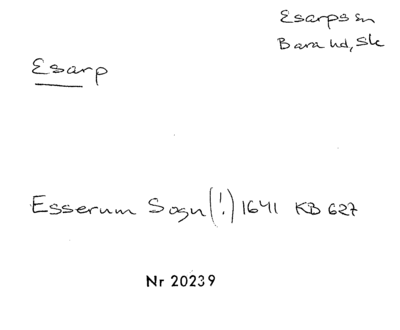 Esarps sn
Bara hd, Sk
Esarp
Esserum Sogn (!) 1641 KB 627
Nr 20239